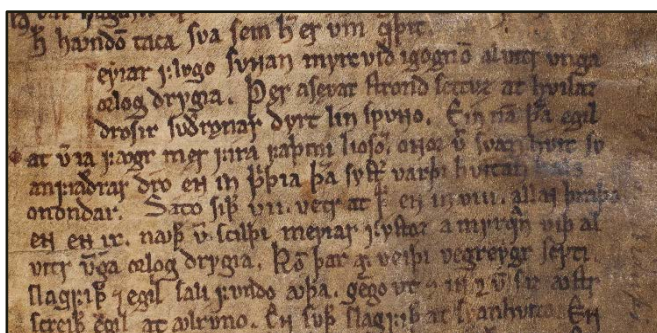 h̅ havndō taca sva sem h̅ er vm qþit.
eyiar flvgo svnnan myrcvið igognō alvitr vnga
ørlog drygia. Þer asevar strond settuz at hvilaz
drosir svðrǫnar dyrt lin spvnno. Ein nā þ̄a egil
at v̄ia fagr mer fira faþmi liosō. onnor v̄ svanhvit sv
anfiaðrar dro en in þ̄þia þ̄a syst͛ varþi hvitan hals
onondar. Sato siþ. vii. vetr at þ̄ en in viii. allan þraþo
en en ix. nauþ v̄ scilþi meyiar fystoz a myrqn̄ viþ al
vitr v̄ga ørlog drygia. Kō þar af veiþi vegreygr scyti
slagfiþ ⁊ egil sali fvndo auþa. gēgo vt ⁊ in ⁊ v̄ saz austr
screiþ egil at ǫlrvno. En svþ slagfiþ at svanhvito. En